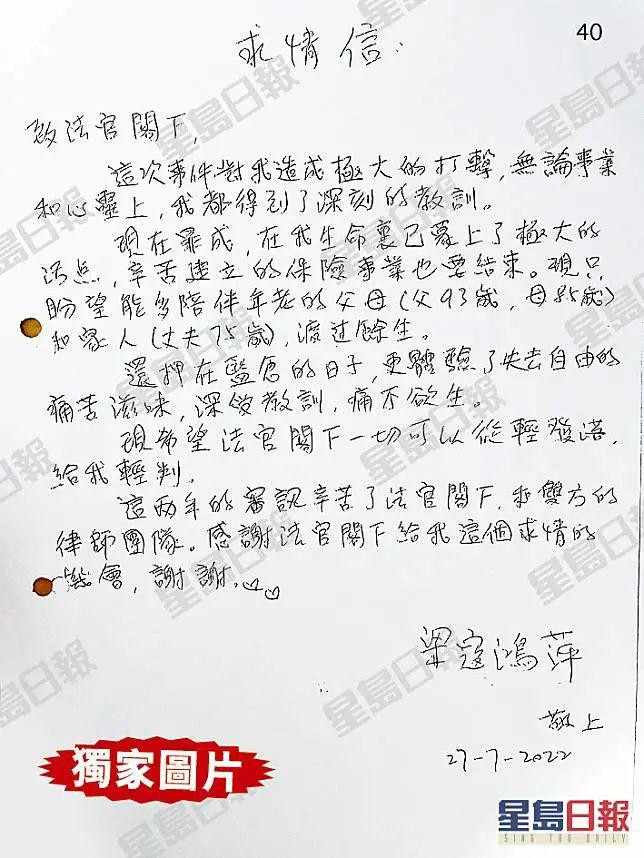 40
求情信:
致法官閣下,
這次事件對我造成極大的打擊,無論事業
和心靈上,我都得到了深刻的教訓。
現在罪成,在我生命裏已蒙上了極大的
污点,辛苦建立的保險事業也要結束。現只
盼望能多陪伴年老的父母(父93歲,母85歲)
和家人(丈夫75歲),渡过餘生。
還押在監倉的日子,更體驗了失去自由的
痛苦滋味,深受教訓,痛不欲生。
現希望法官閣下一切可以從輕發落,
給我輕判。
這兩年的審訊辛苦了法官閣下,和雙方的
律師團隊。感謝法官閣下給我這個求情的
機會,謝謝。
梁寇鴻萍
敬上
27-7-2022
獨家圖片
星島日報
SING TAO DAILY